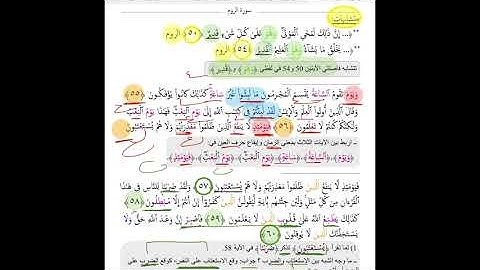 سورة الروم
متشابهات:
**﴿... إِنَّ ذَٰلِكَ لَمُحْيِ الْمَوْتَىٰ وَهُوَ عَلَىٰ كُلِّ شَيْءٍ قَدِيرٌ ﴿٥٠﴾ الروم
**﴿... يَخْلُقُ مَا يَشَاءُ وَهُوَ الْعَلِيمُ الْقَدِيرُ ﴿٥٤﴾ الروم
تتشابه فاصلتي الآيتين 50 و 54 في لفظي
وَيَوْمَ تَقُومُ السَّاعَةُ يُقْسِمُ الْمُجْرِمُونَ مَا لَبِثُوا غَيْرَ سَاعَةٍ كَذَٰلِكَ كَانُوا يُؤْفَكُونَ ﴿٥٥﴾
وَقَالَ الَّذِينَ أُوتُوا الْعِلْمَ وَالْإِيمَانَ لَقَدْ لَبِثْتُمْ فِي كِتَابِ اللَّهِ إِلَىٰ يَوْمِ الْبَعْثِ فَهَٰذَا يَوْمُ الْبَعْثِ
وَلَٰكِنَّكُمْ كُنْتُمْ لَا تَعْلَمُونَ ﴿٥٦﴾ فَيَوْمَئِذٍ لَا يَنْفَعُ الَّذِينَ ظَلَمُوا مَعْذِرَتُهُمْ وَلَا هُمْ يُسْتَعْتَبُونَ
ـ الربط بين الآيات الثلاث بمعنى الزمان وإيقاع حرف العين في:
﴿وَيَوْمَ، ﴿السَّاعَةُ، ﴿سَاعَةٍ، ﴿يَوْمِ الْبَعْثِ، ﴿يَوْمُ الْبَعْثِ، ﴿فَيَوْمَئِذٍ
فَيَوْمَئِذٍ لَا يَنْفَعُ الَّذِينَ ظَلَمُوا مَعْذِرَتُهُمْ وَلَا هُمْ يُسْتَعْتَبُونَ ﴿٥٧﴾ وَلَقَدْ ضَرَبْنَا لِلنَّاسِ فِي هَٰذَا
الْقُرْآنِ مِنْ كُلِّ مَثَلٍ وَلَئِنْ جِئْتَهُمْ بِآيَةٍ لَيَقُولَنَّ الَّذِينَ كَفَرُوا إِنْ أَنْتُمْ إِلَّا مُبْطِلُونَ ﴿٥٨﴾
كَذَٰلِكَ يَطْبَعُ اللَّهُ عَلَىٰ قُلُوبِ الَّذِينَ لَا يَعْلَمُونَ ﴿٥٩﴾ فَاصْبِرْ إِنَّ وَعْدَ اللَّهِ حَقٌّ وَلَا
يَسْتَخِفَّنَّكَ الَّذِينَ لَا يُوقِنُونَ ﴿٦٠﴾
1) لما تقرأ: ﴿يُسْتَعْتَبُونَ﴾ تذكر ﴿ضَرَبْنَا﴾ في الآية 58.
ـ ما وجه الشبه بين الاستعتاب والضرب؟ جواب: وقع الاستعتاب على النفس، كوقع الضرب على